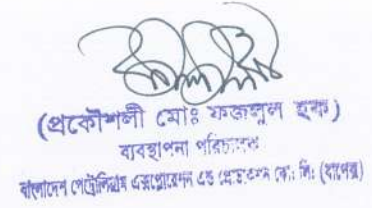 (প্রকৌশলী মোঃ ফজলুল হক)
ব্যবস্থাপনা পরিচালক
বাংলাদেশ পেট্রোলিয়াম এক্সপ্লোরেশন এন্ড প্রোডাকশন কোং লিঃ (বাপেক্স)